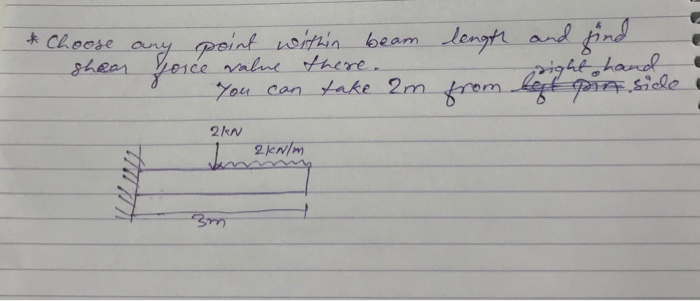 * Choose any point within beam length and find
shear force value there.
right hand
You can take 2m from left pin side
2kN
2kN/m
3m